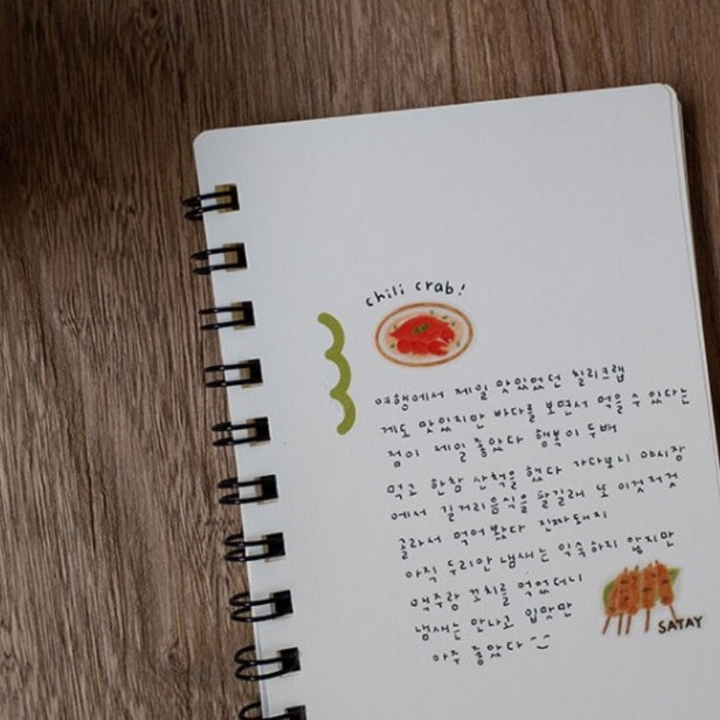 chili crab!
여행에서 제일 맛있었던 칠리크랩
게도 맛있지만 바다를 보면서 먹을 수 있다는
점이 제일 좋았다 행복이 두배
먹고 한참 산책을 했다 가다보니 야시장
에서 길거리음식을 팔길래 또 이것저것
골라서 먹어봤다 진짜 돼지
아직 두리안 냄새는 익숙하지 않지만
맥주랑 꼬치를 먹었더니
냄새는 안나고 입맛만
아주 좋았다 ^^
SATAY